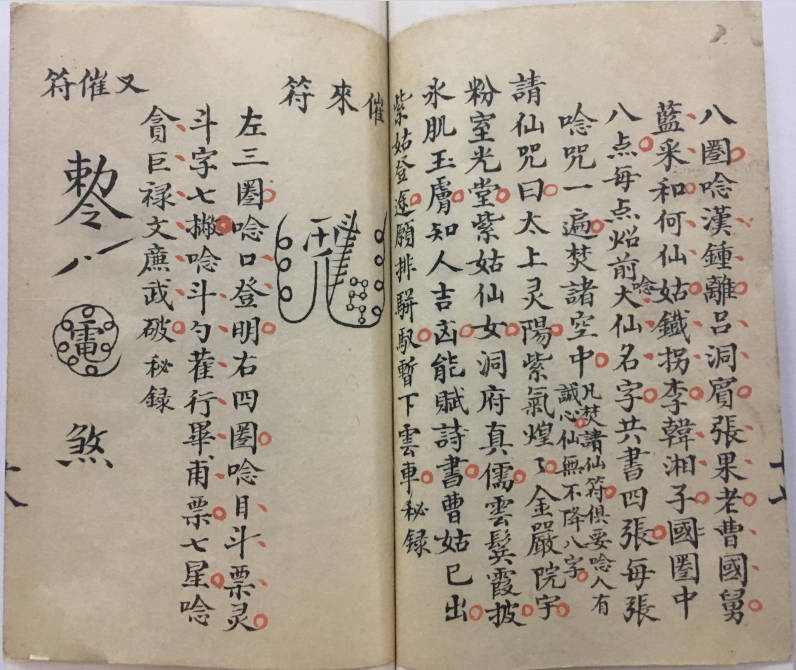 八圈唸漢鍾離呂洞賓張果老曹國舅
藍采和何仙姑鐵拐李韓湘子國圈中
八点每点炤前唸大仙名字共書四張每張
唸咒一遍焚諸空中凡焚請仙符俱要唸人有
誠心仙無不降八字
請仙咒曰太上灵陽紫氣煌々金嚴院宇
粉室光堂紫姑仙女洞府真儒雲鬂霞披
氷肌玉膚知人吉凶能賦詩書曹姑已出
紫姑登途願排駢馭暫下雲車秘録
催來符
左三圈唸口登明右四圈唸目斗票灵
斗字七撇唸斗勺雈行畢甫票七星唸
貪巨禄文廉武破秘録
又催符
勅令
電
煞
十八